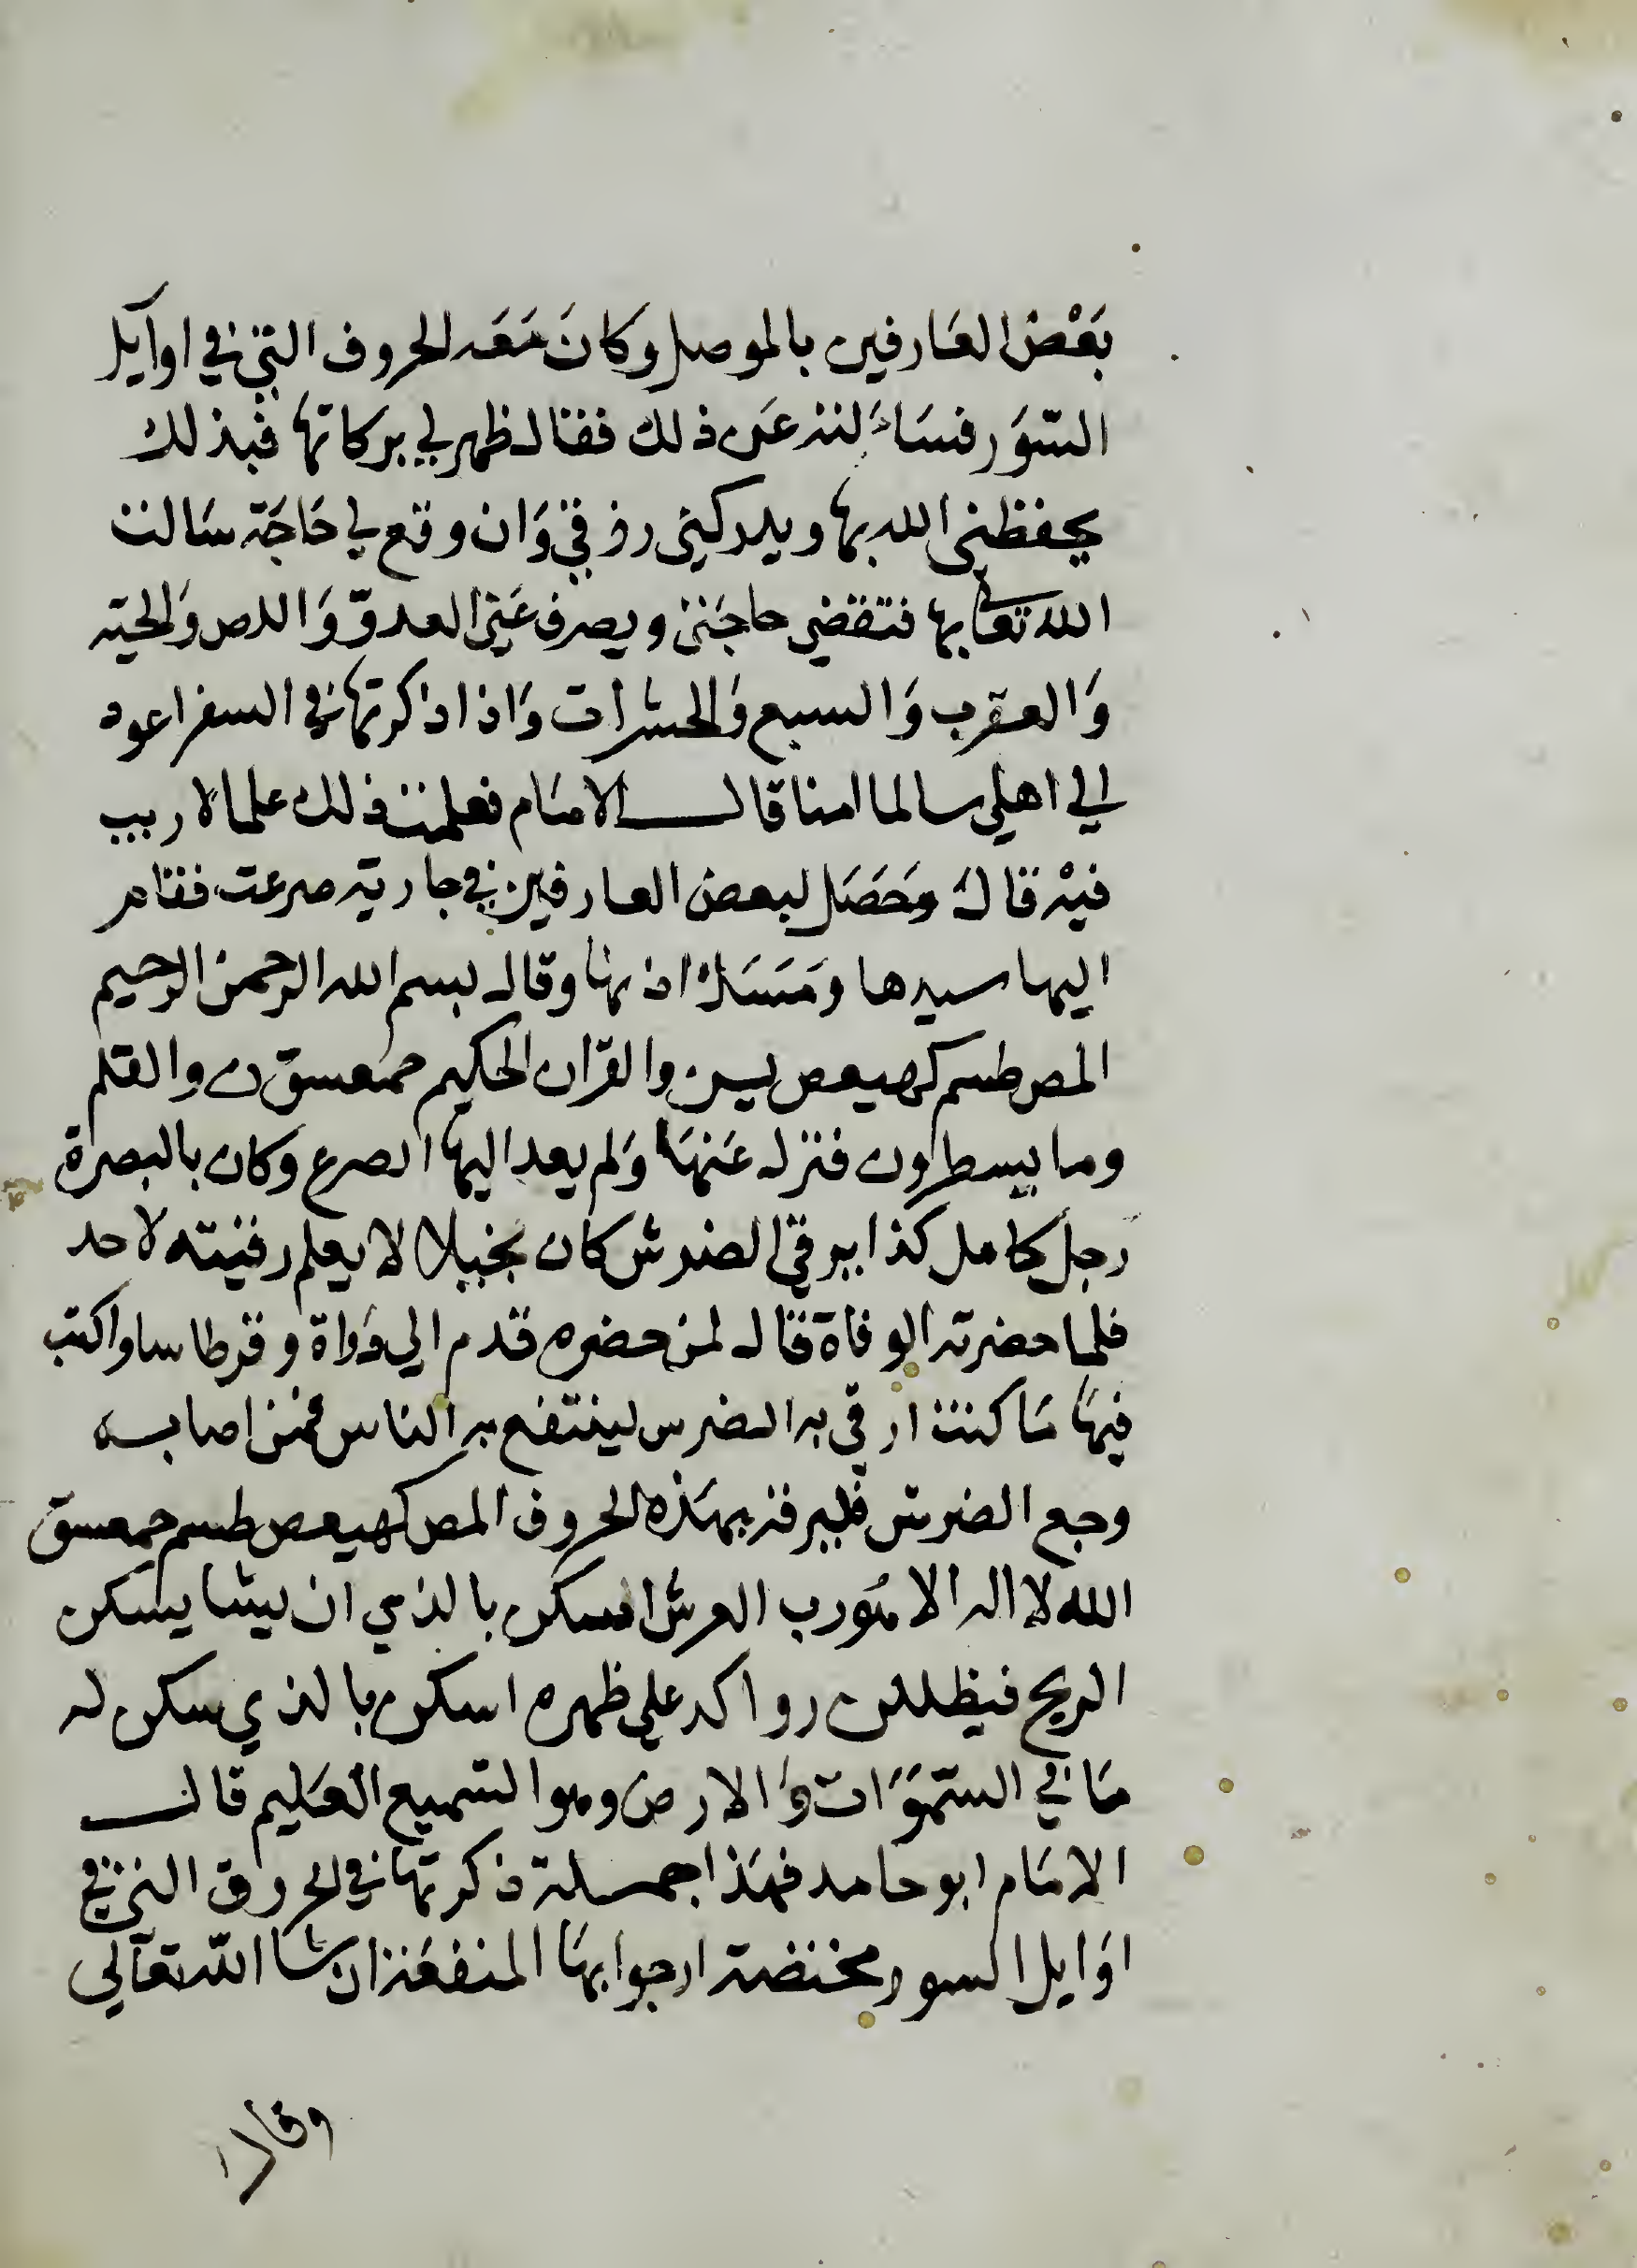 بَعْض العَارفين بالموصل وكانَ مَعَه الحروف التي في اوآيل
السّوَر فسَاَلته عَن ذلك فقال ظهر لي بركاتها فبذلك
يحفظني الله بها ويدركني رزقي وَان وقع لي حَاجَة سَالت
الله تعالى بها فتقضي حاجَتي ويصرف عَني العدوّ وَاللص وَالحيّه
وَالعقرب وَالسبع وَالحشرات وَاذا ذكرتها في السفر اعود
الي اهلي سالما امنا قال الامَام فعلمت ذلك علما لا ريب
فيْه قال وحَصَل لبعض العارفين في جارية صرعت فقام
اليها سيدها ومَسَك اذنها وقال بسم الله الرحمن الرحيم
المص طسم كهيعص يسن والقران الحكيم حمعسق ن والقلم
وما يسطرون فنزل عَنهَا وَلم يعد اليها الصرع وكان بالبصرة
رجل كامل كذا يرقي الضرس كان بخيلا لا يعلم رقيته لاحد
فلما حضرته الوفاة قال لمن حضره قدم الي دَواة وقرطاسا واكتب
فيهَا مَا كنت ارقي به الضرس لينتفع به الناس فمن اصابه
وجع الضرس فليرقه بهَذه الحروف المص كهيعص طسم حمعسق
الله لا اله الا هُو رب العرش اسكن بالذي ان يشا يسكن
الريح فيظللن رواكد علي ظهره اسكن بالذي سكن له
مَا في السّمَوَات وَالارض وهو السّميع العَليم قال
الامَام ابو حامد فهَذا جمسلة ذكرتها في الحروف التي في
اوَايل السور مختضة ارجوا بهَا المنفعَة ان شا اللّه تعَآلي
وقال